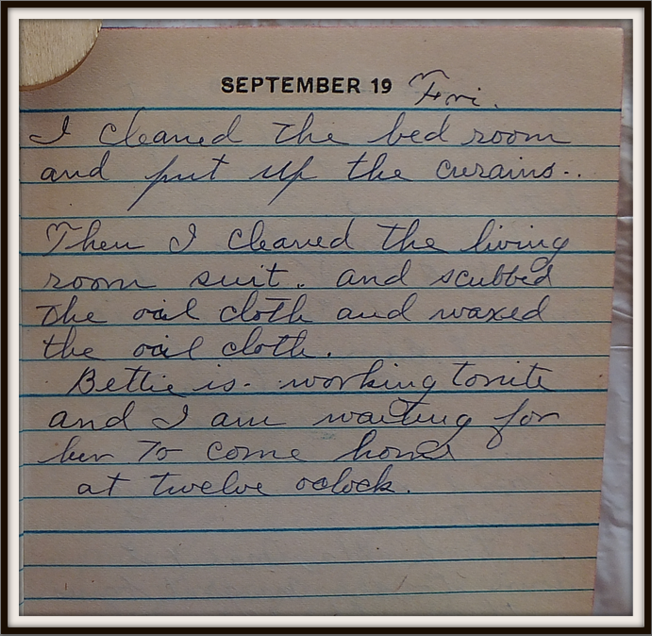 SEPTEMBER 19 Fri.
I cleaned the bed room
and put up the curains..
Then I cleaned the living
room suit. and scubbed
the oail cloth and waxed
the oail cloth.
Bettie is. working tonite
and I am waiting for
her To come home
at twelve oclock.